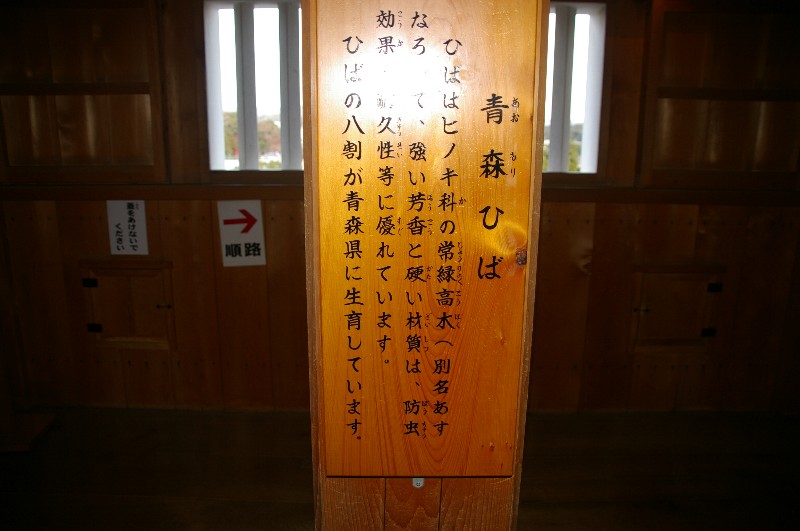 青森ひば
あお もり
ひばはヒノキ科の常緑高木(別名あす
なろ て、強い芳香と硬い材質は、防虫
効果 久性等に優れています。
ひばの八割が青森県に生育しています。
蓋をあけないで
ください
順路